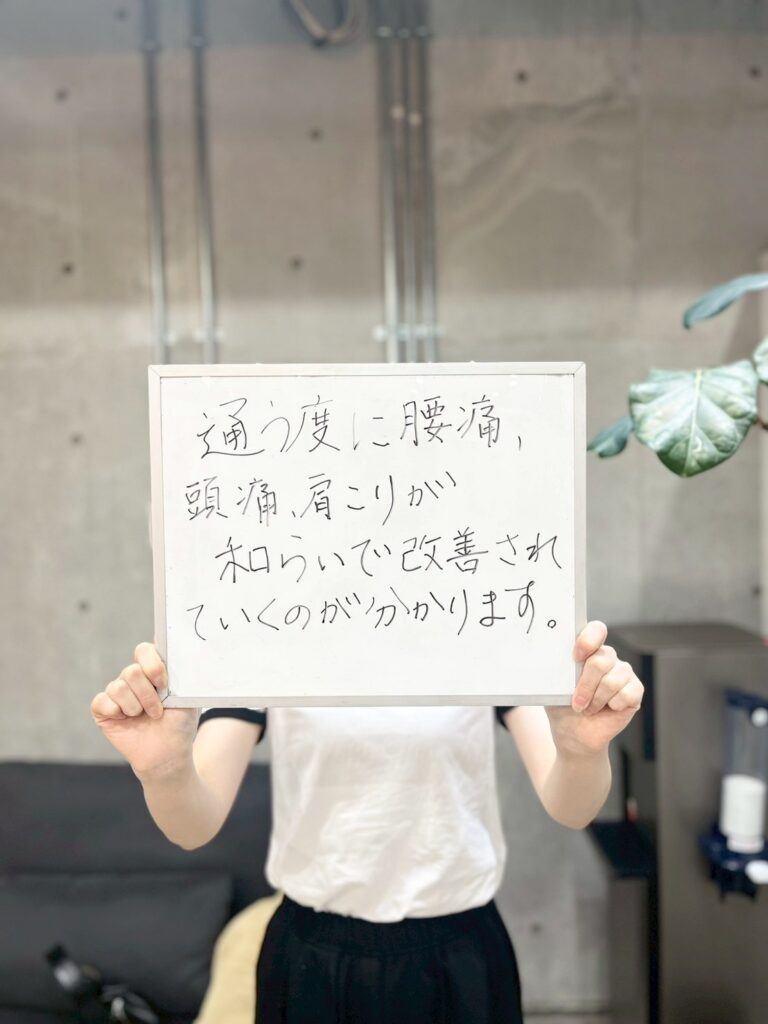 通う度に腰痛、
頭痛、肩こりが
和らいで改善され
ていくのが分かります。